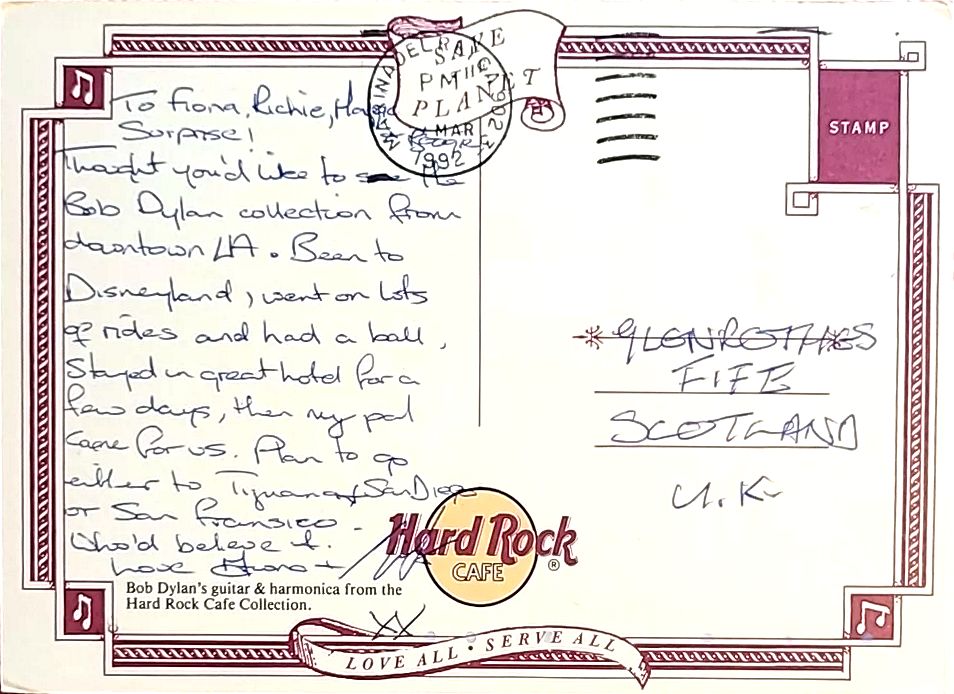 SAVE
THE
PLANET
MARINA DEL REY CA 902
PM
MAR
1992
STAMP
To Fiona, Richie,
Surprise!
Thought you'd like to see the
Bob Dylan collection from
downtown LA. Been to
Disneyland, went on lots
of rides and had a ball,
Stayed in great hotel for a
few days, then my pal
came for us. Plan to go
either to Tijuana San Diego
or San Fransisco -
Who'd believe it.
Love +
XX
GLENROTHES
FIFE
SCOTLAND
U.K.
Hard Rock
CAFE
®
Bob Dylan's guitar & harmonica from the
Hard Rock Cafe Collection.
LOVE ALL • SERVE ALL